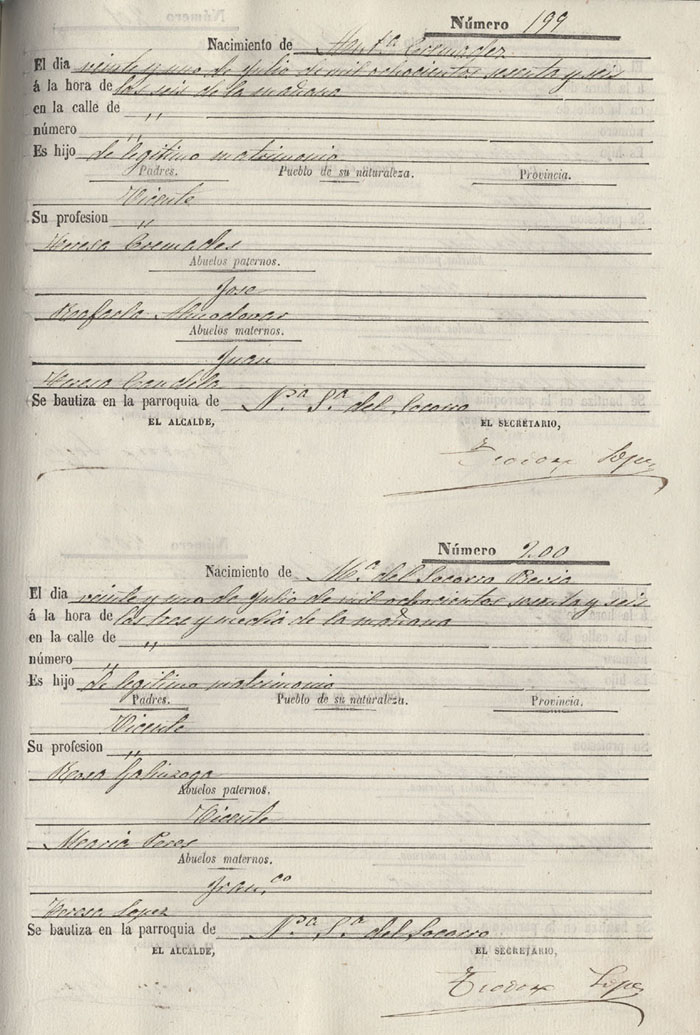 Número 199
Nacimiento de Cremades
El dia veinte y uno de Julio de mil ochocientos sesenta y seis
á la hora de las seis de la mañana
en la calle de „
número „
Es hijo de legitimo matrimonio
Padres. Pueblo de su naturaleza. Provincia.
Vicente
Su profesion „
Teresa Cremades
Abuelos paternos.
Jose
Rafaela Almodovar
Abuelos maternos.
Juan
Teresa Candela
Se bautiza en la parroquia de N.ª S.ª del Socorro
EL ALCALDE, EL SECRETARIO,
Teodoro Lopez
Número 200
Nacimiento de M.ª del Socorro
El dia veinte y uno de Julio de mil ochocientos sesenta y seis
á la hora de las tres y media de la mañana
en la calle de „
número „
Es hijo de legitimo matrimonio
Padres. Pueblo de su naturaleza. Provincia.
Vicente
Su profesion „
Rosa
Abuelos paternos.
Vicente
Maria Peres
Abuelos maternos.
Fran.co
Teresa Lopez
Se bautiza en la parroquia de N.ª S.ª del Socorro
EL ALCALDE, EL SECRETARIO,
Teodoro Lopez